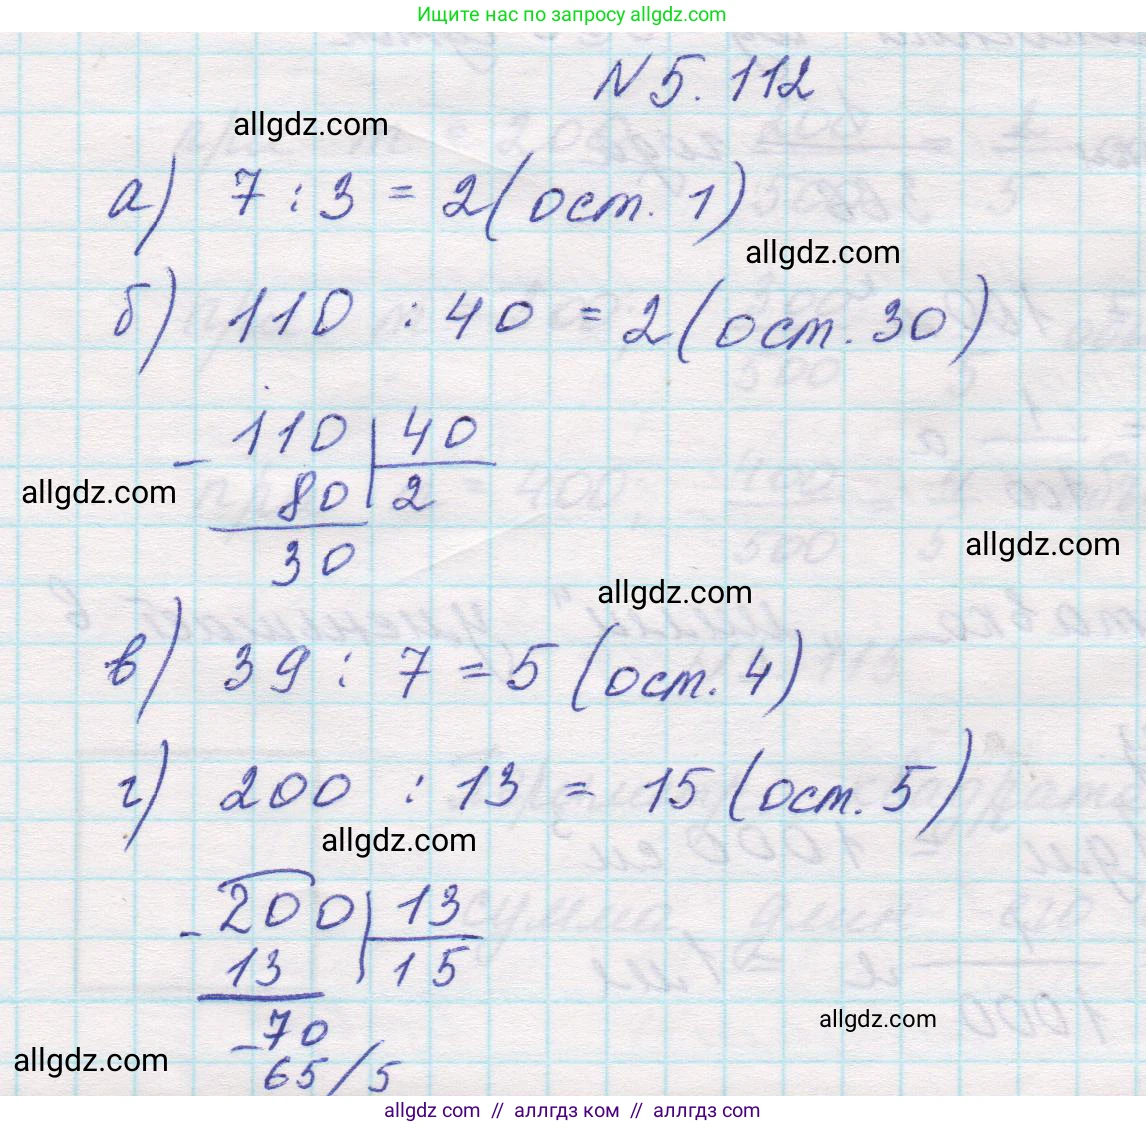 Ищите нас по запросу allgdz.com
N 5. 112
allgdz.com
а) 7 : 3 = 2 (ост. 1)
allgdz.com
б) 110 : 40 = 2 (ост. 30)
- 110 | 40
80 | 2
allgdz.com
30
allgdz.com
allgdz.com
в) 39 : 7 = 5 (ост. 4)
г) 200 : 13 = 15 (ост. 5)
allgdz.com
- 200 | 13
13 | 15
- 70
allgdz.com
65 / 5
allgdz.com
allgdz com // аллгдз ком // allgdz.com